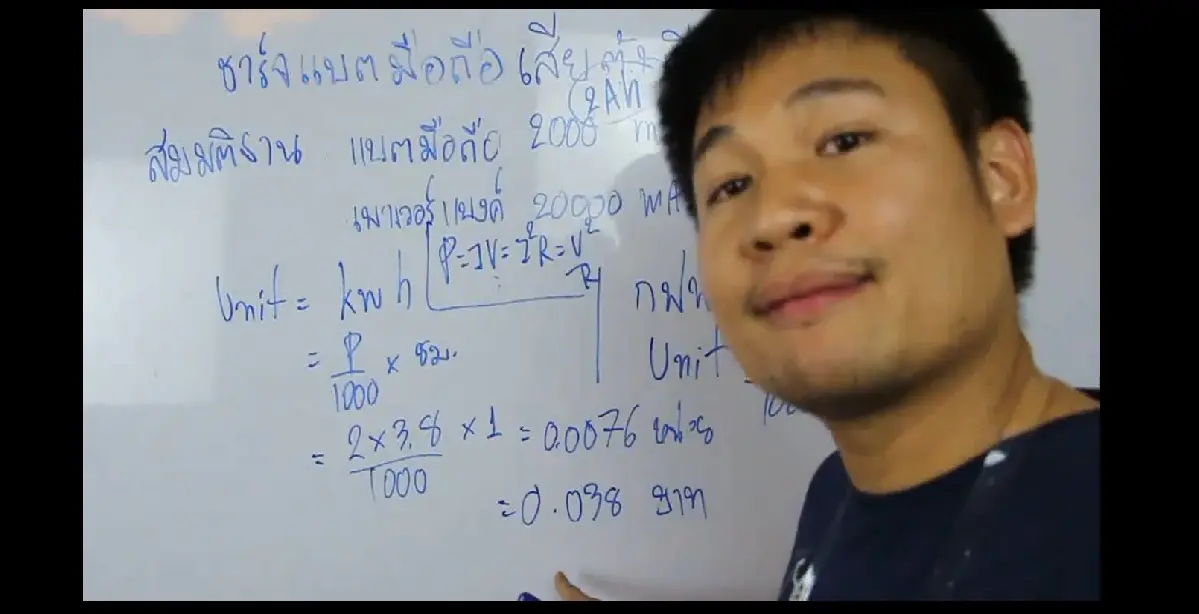 ชาร์จแบตมือถือ เสียตัง
(2Ah
สมมติฐาน แบตมือถือ 2000 m
เพาเวอร์แบงค์ 20000 mA
P=IV=I²R=V²
R
Unit = kwh
กฟน
= P/1000 × ชม.
Unit
= 2×3.8/1000 × 1 = 0.0076 หน่วย
= 0.038 บาท